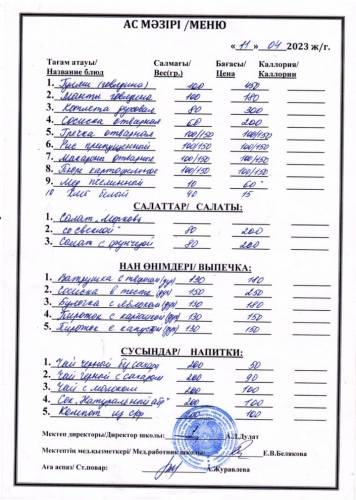 АС МӘЗІРІ /МЕНЮ
« 11 » 04 2023 ж/г.
Тағам атауы/ Салмағы/ Бағасы/ Каллория/
Название блюд Вес(гр.) Цена Каллории
1. Гуляш (говядина) 100 450
2. Манты говядина 100 180
3. Котлета духовая 80 300
4. Сосиска отварная 68 200
5. Гречка отварная 100/150 100/150
6. Рис припущенной 100/150 100/150
7. Макароны отварное 100/150 100/150
8. Пюре картофельное 100/150 100/150
9. Мед пчелинный 10 60
10 Хлеб белой 40 15
САЛАТТАР/ САЛАТЫ:
1. Салат „Морковь
2. со свеклой" 80 200
3. Салат с 80 200
НАН ӨНІМДЕРІ/ ВЫПЕЧКА:
1. Ватрушка с творогом 130 180
2. Сосиска в тесте 150 250
3. Булочка с яблоком 130 180
4. Пирожок с картошкой 130 150
5. Пирожок с капустой 130 150
СУСЫНДАР/ НАПИТКИ:
1. Чай черной б/сахара 200 50
2. Чай черной с сахаром 200 90
3. Чай с молоком 200 100
4. Сок „Натуральной 200 100
5. Компот из с/ф 200 100
Мектеп директоры/Директор школы: А.Т.Дулат
Мектептің мед.қызметкері/ Мед.работник школы: Е.В.Белякова
Аға аспаз/ Ст.повар: А.Журавлева